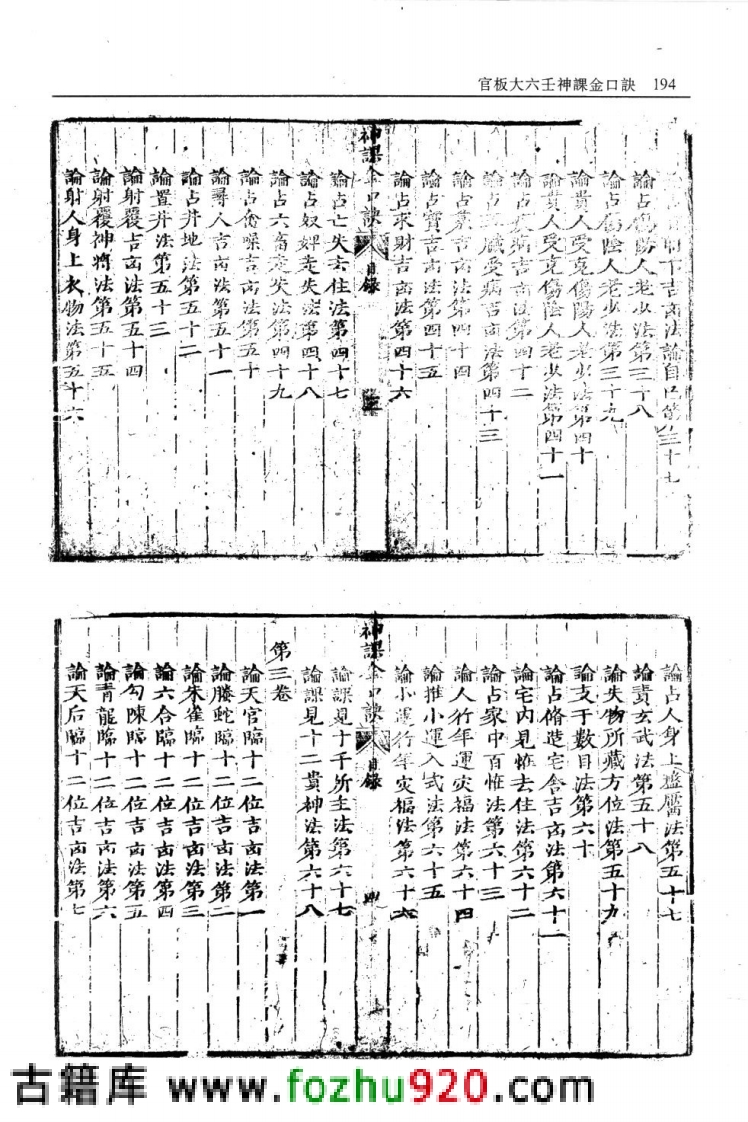 官板大六壬神課金口訣 194
吉凶法論自己第三十七
論占傷陽人老少法第三十八
論占傷陰人老少法第三十九
論貴人受克傷陽人老少法第四十
論貴人受克傷陰人老少法第四十一
論占疾病吉凶法第四十二
論占五臟受病吉凶法第四十三
論占墓吉凶法第四十四
論占寶吉凶法第四十五
論占求財吉凶法第四十六
神課金口訣 目錄 三
論占亡失去住法第四十七
論占奴婢走失法第四十八
論占六畜走失法第四十九
論占禽噪吉凶法第五十
論尋人吉凶法第五十一
論占井地法第五十二
論置井法第五十三
論射覆吉凶法第五十四
論射覆神將法第五十五
論射人身上衣物法第五十六
論占人身上盬黶法第五十七
論責玄武法第五十八
論失物所藏方位法第五十九
論支干數目法第六十
論占脩造宅舍吉凶法第六十一
論宅內見恠去住法第六十二
論占家中百恠法第六十三
論人行年運灾福法第六十四
論推小運入式法第六十五
論小運行年灾福法第六十六
神課金口訣 目錄
論課見十干所主法第六十七
論課見十二貴神法第六十八
第三卷
論天官臨十二位吉凶法第一
論螣蛇臨十二位吉凶法第二
論朱雀臨十二位吉凶法第三
論六合臨十二位吉凶法第四
論勾陳臨十二位吉凶法第五
論青龍臨十二位吉凶法第六
論天后臨十二位吉凶法第七
古籍库 www.fozhu920.com